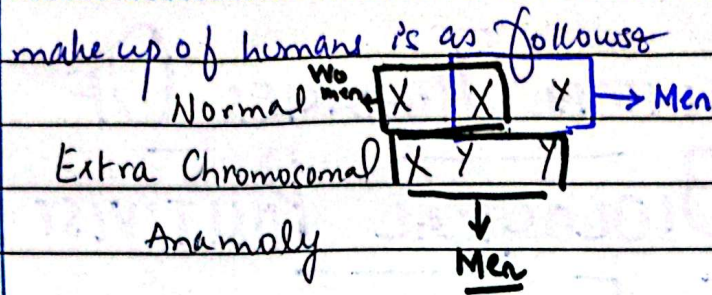 make up of humans is as follows:
Women
Normal X X Y → Men
Extra Chromosomal X Y Y
Anamoly
Men